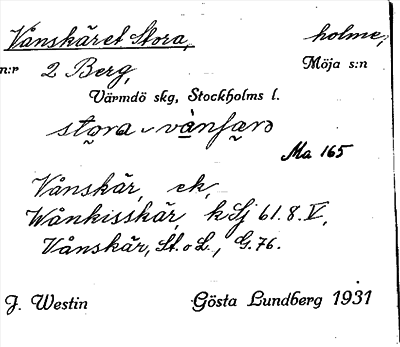 Vånskäret Stora, holme,
n:r 2 Berg, Möja s:n
Värmdö skg, Stockholms l.
stora vånſæṇ
Ma 165
Vånskär, ek,
Wånkisskär, kSj 61.8.V,
Vånskär, St. o L., G. 76.
J. Westin Gösta Lundberg 1931